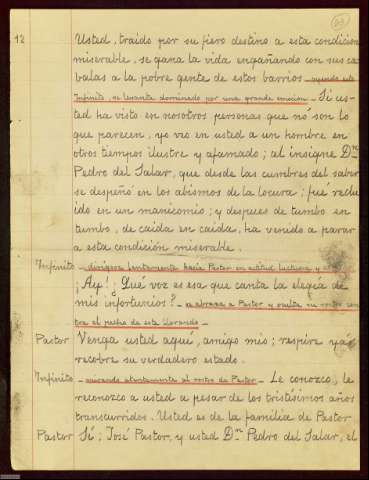 12
Usted, traido por su fiero destino a esta condicion
miserable, se gana la vida engañando con sus ca-
balas a la pobre gente de estos barrios - oyendo esto
Infinito, se levanta dominado por una grande emocion - Si us-
ted ha visto en nosotros personas que no son lo
que parecen, yo veo en usted a un hombre en
otros tiempos ilustre y afamado; al insigne Dn
Pedro del Salar, que desde las cumbres del saber
se despeñó en los abismos de la locura; fué reclu-
ido en un manicomio; y despues de tumbo en
tumbo, de caida en caida, ha venido a parar
a esta condición miserable.
Infinito - dirigese lentamente hacia Pastor en actitud luctuosa y
¡Ay! ¿Qué voz es esa que canta la elegia de
mis infortunios? - a abraza a Pastor y oculta su rostro con-
tra el pecho de este llorando -
Pastor Venga usted aquí, amigo mio; respire y
recobre su verdadero estado.
Infinito - mirando atentamente al rostro de Pastor - Le conozco, le
reconozco a usted a pesar de los tristísimos años
transcurridos. Usted es de la familia de Pastor
Pastor Sí; José Pastor, y usted Dn Pedro del Salar, el